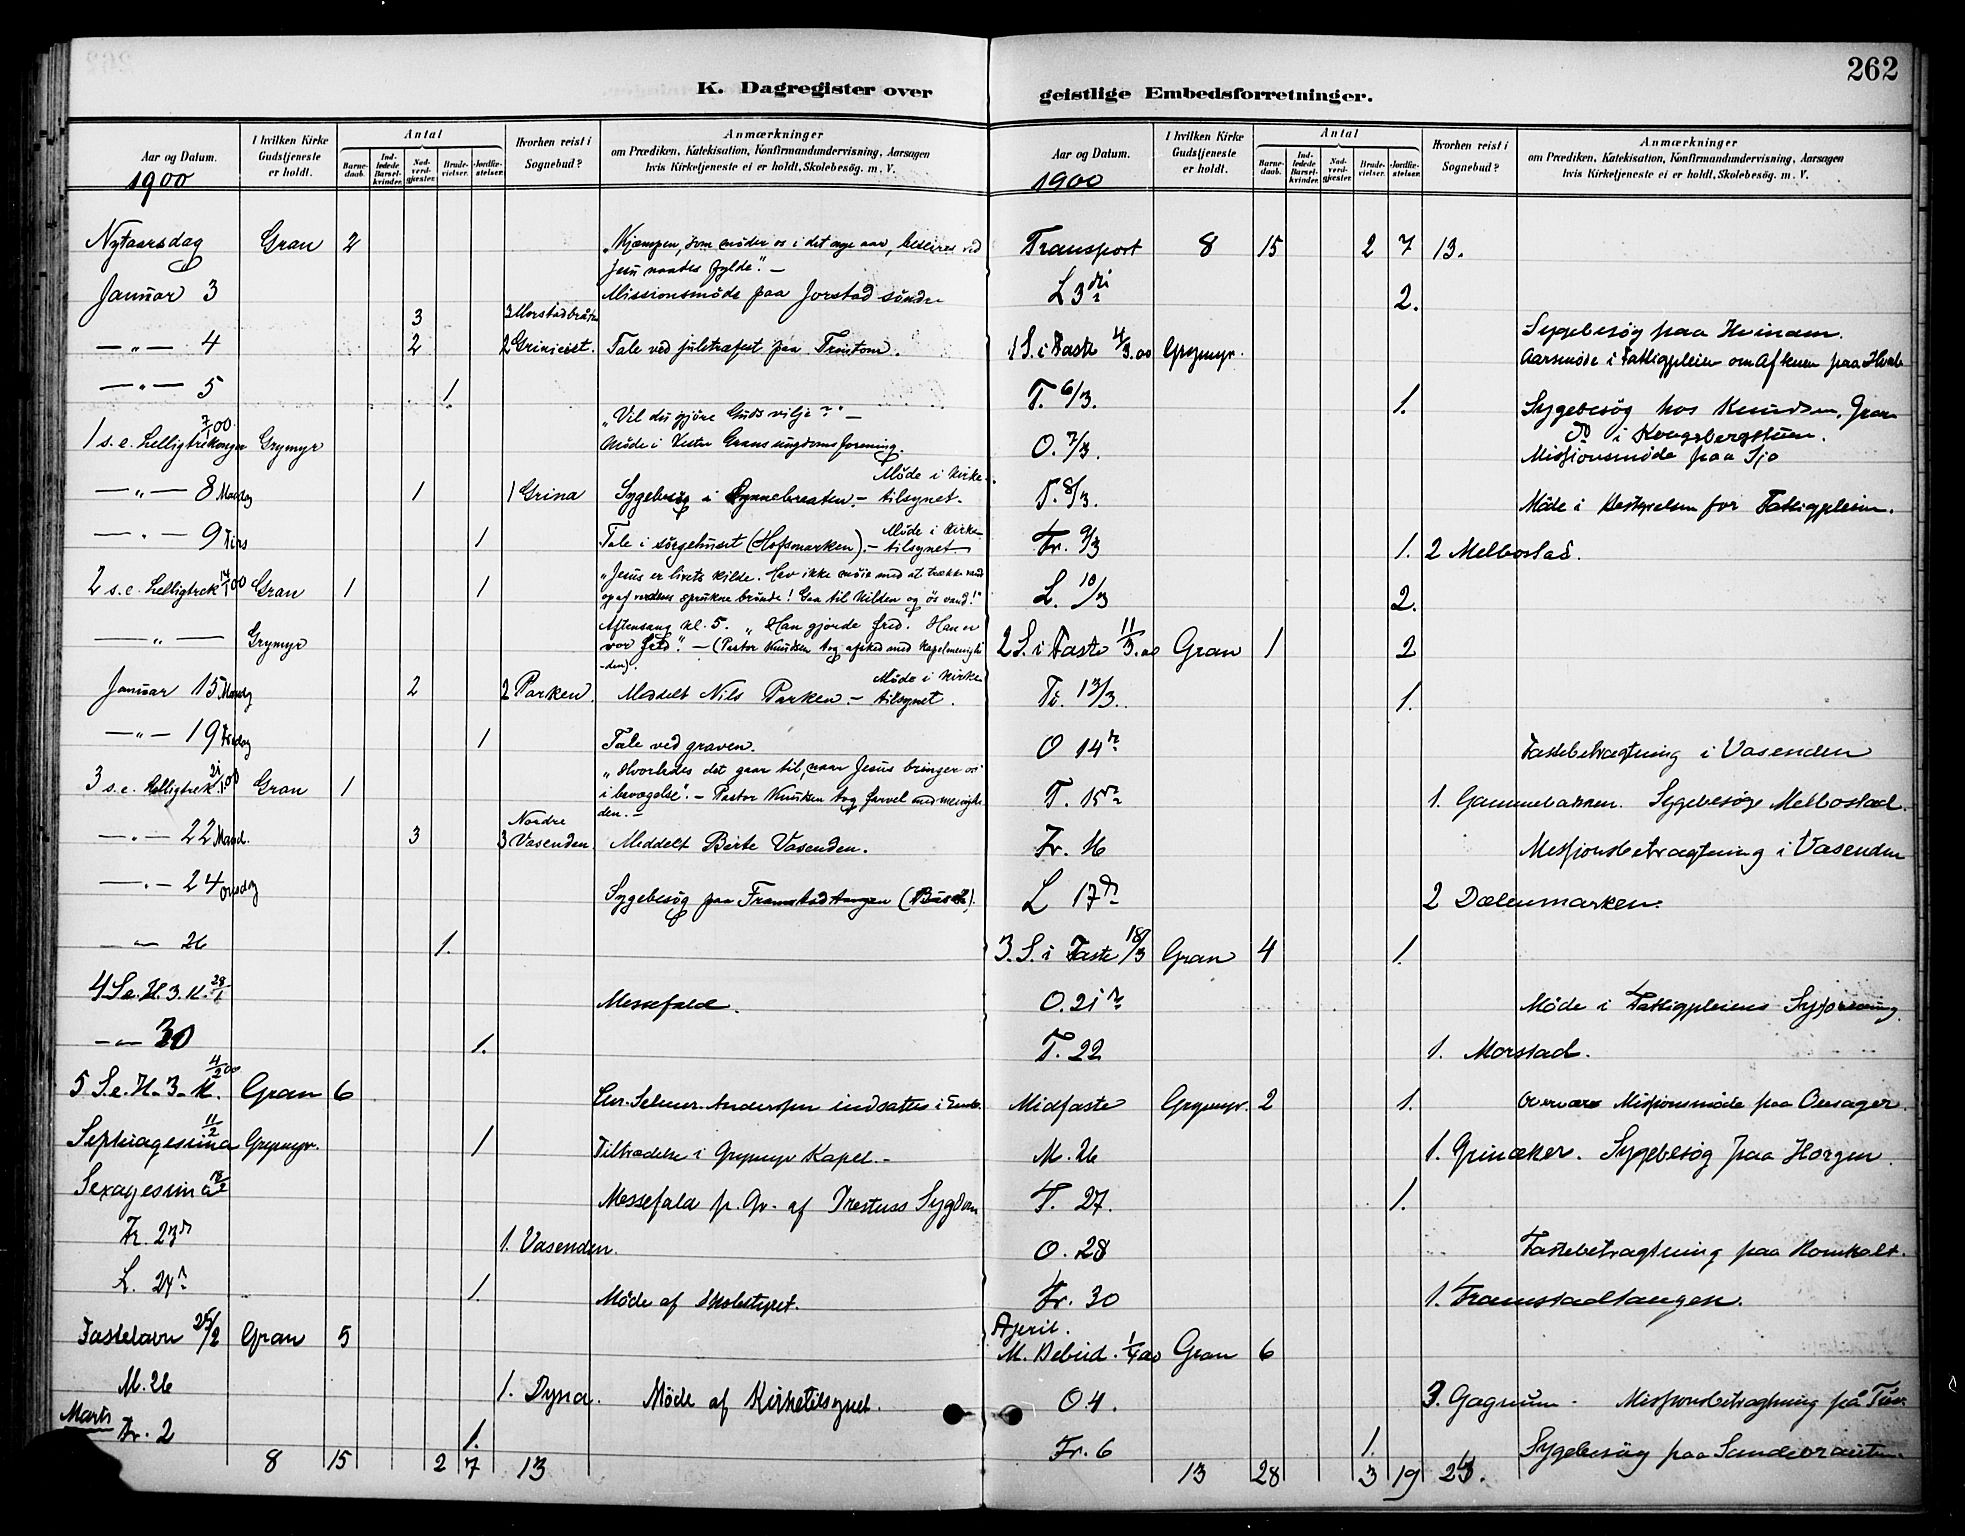 262
K. Dagregister over geistlige Embedsforretninger.
Aar og Datum.
1900
I hvilken Kirke Gudstjeneste er holdt.
Antal
Barnedaab.
Indledede Barselkvinder.
Nadverdgjester.
Brudevielser.
Jordfæstelser.
Hvorhen reist i Sognebud?
Anmærkninger
om Prædiken, Katekisation, Konfirmandundervisning, Aarsagen
hvis Kirketjeneste ei er holdt, Skolebesøg. m. V.
Nytaarsdag Gran 2 „Kjæmpen, som møder os i det nye aar, beseires ved
Jesu naades fylde." —
Januar 3 3 3 Morstadbråten Missionsmøde paa Jorstad søndre
— „ — 4 2 2 Grinieiet. Tale ved juletræfest paa Tingtom.
— „ — 5 1.
1 s. e. helligtrekonger 7/1 00. Grymyr „Vil du gjøre Guds vilje?" —
Møde i Vestre Grans ungdomsforening.
— „ — 8 Mandag 1 1 Grina Sygebesøg i — Møde i kirketilsynet.
— „ — 9 Tirs 1 Tale i sørgehuset (Hofsmarken). — Møde i kirketilsynet
2 s. e. helligtrek 14/1 00 Gran 1 1 „Jesus er livets kilde. Hav ikke møie med at trække vand
op af verdens sprukne brønde! Gaa til kilden og øs vand!"
— „ — Grymyr Aftensang kl. 5. „Han gjorde fred. Han er
vor fred." — (Pastor Knudsen tog afsked med kapelmenigheden).
Januar 15 Mandag 2 2 Parken. Meddelt Nils Parken. — Møde i kirketilsynet.
— „ — 19 Fredag 1 Tale ved graven.
3 s. e. helligtrek. 21/1 00 Gran 1 „Hvorledes det gaar til, naar Jesus bringer os
i bevægelse". — Pastor Knudsen tog farvel med menigheden. —
— „ — 22 Mand. 3 3 Nordre Vasenden Meddelt Berte Vasenden.
— „ — 24 Onsdag Sygebesøg paa Framstadtangen
— „ — 26 1.
4 S. e. H. 3. K. 28/1 Messefald.
— „ — 30 1.
5 S. e. H. 3. K. 4/2 00 Gran 6 Andersen indsattes i Emb.
Septuagesima 11/2 Grymyr. 1 Tiltrædelse i Grymyr Kapel. —
Sexagesima 18/2 Messefald p. Gr. af Prestens Sygdom
Fr. 23d 1. Vasenden.
L. 24d 1. Møde af Skolestyret.
Fastelavn 25/2 Gran 5
M. 26 1. Dyna. Møde af Kirketilsynet.
Marts
Fr. 2 1.
8 15 2 7 13
Aar og Datum.
1900
I hvilken Kirke Gudstjeneste er holdt.
Antal
Barnedaab.
Indledede Barselkvinder.
Nadverdgjester.
Brudevielser.
Jordfæstelser.
Hvorhen reist i Sognebud?
Anmærkninger
om Prædiken, Katekisation, Konfirmandundervisning, Aarsagen
hvis Kirketjeneste ei er holdt, Skolebesøg. m. V.
Transport 8 15 2 7 13.
L 3di 2.
1 S. i Faste 4/3.00 Grymyr. Sygebesøg paa Hvinden.
Aarsmøde i Fattigpleien om Aftenen paa Hval
T. 6/3. 1. Sygebesøg hos Knudsen, Gran
Do i Kongsbergstuen.
O. 7/3. Missionsmøde paa Sjo
T. 8/3. Møde i Bestyrelsen for Fattigpleien.
Fr. 9/3 1. 2 Melbostad.
L. 10/3 2.
2 S. i Faste 11/3.00 Gran 1 2
Ti. 13/3. 1.
O 14d Fastebetragtning i Vasenden
T. 15d 1. Gammebakken. Sygebesøg Melbostad.
Fr. 16 Missionsbetragtning i Vasenden
L 17d 2 Dælenmarken.
3. S. i Faste 18/3 Gran 4 1.
O. 21d Møde i Fattigpleiens Syforening.
T. 22 1. Morstad.
Midfaste Grymyr. 2 1. Overvære Missionsmøde paa Onsager.
M. 26 1. Grinaker. Sygebesøg paa Horgen.
T. 27. 1.
O. 28 Fastebetragtning paa Homkalt.
Fr. 30 1. Framstadtangen.
April.
M. Bebud. 1/4 00 Gran 6
O 4. 3. Gagnum. Missionsbetragtning på
Fr. 6 1. Sygebesøg paa Sandbraaten.
13 28 3 19 23.